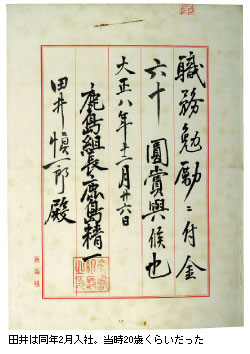 職務勉励ニ付金
六十圓賞與候也
大正八年十二月廿六日
鹿島組長鹿島精一
田井慎一郎殿
田井は同年2月入社。当時20歳くらいだった